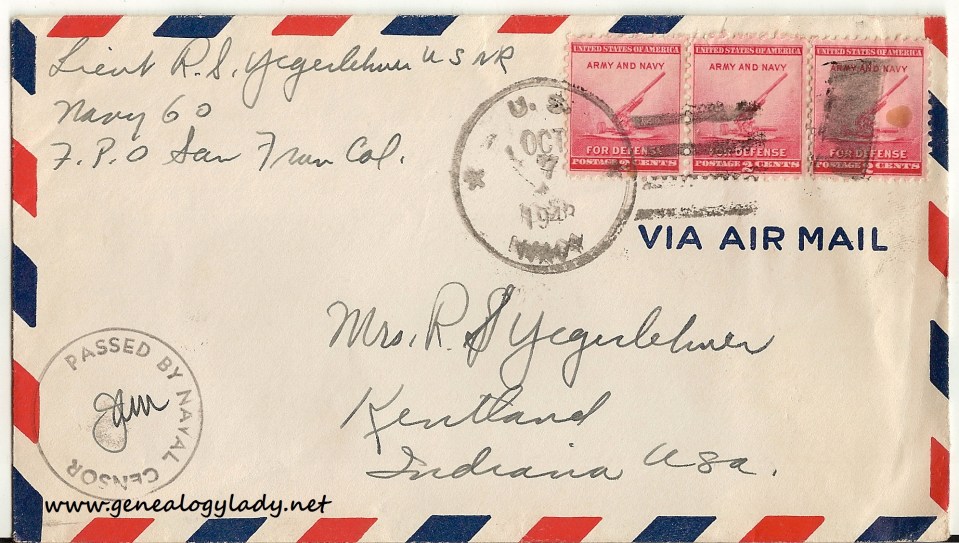 Lieut R. S. Yegerlehner USNR
Navy 60
F.P.O San Fran Cal.
UNITED STATES OF AMERICA
ARMY AND NAVY
FOR DEFENSE
POSTAGE 2 CENTS
UNITED STATES OF AMERICA
ARMY AND NAVY
FOR DEFENSE
POSTAGE 2 CENTS
UNITED STATES OF AMERICA
ARMY AND NAVY
FOR DEFENSE
POSTAGE 2 CENTS
U. S.
OCT
7
NAVY
VIA AIR MAIL
Mrs. R. S Yegerlehner
Kentland
Indiana USA.
PASSED BY NAVAL CENSOR
www.genealogylady.net